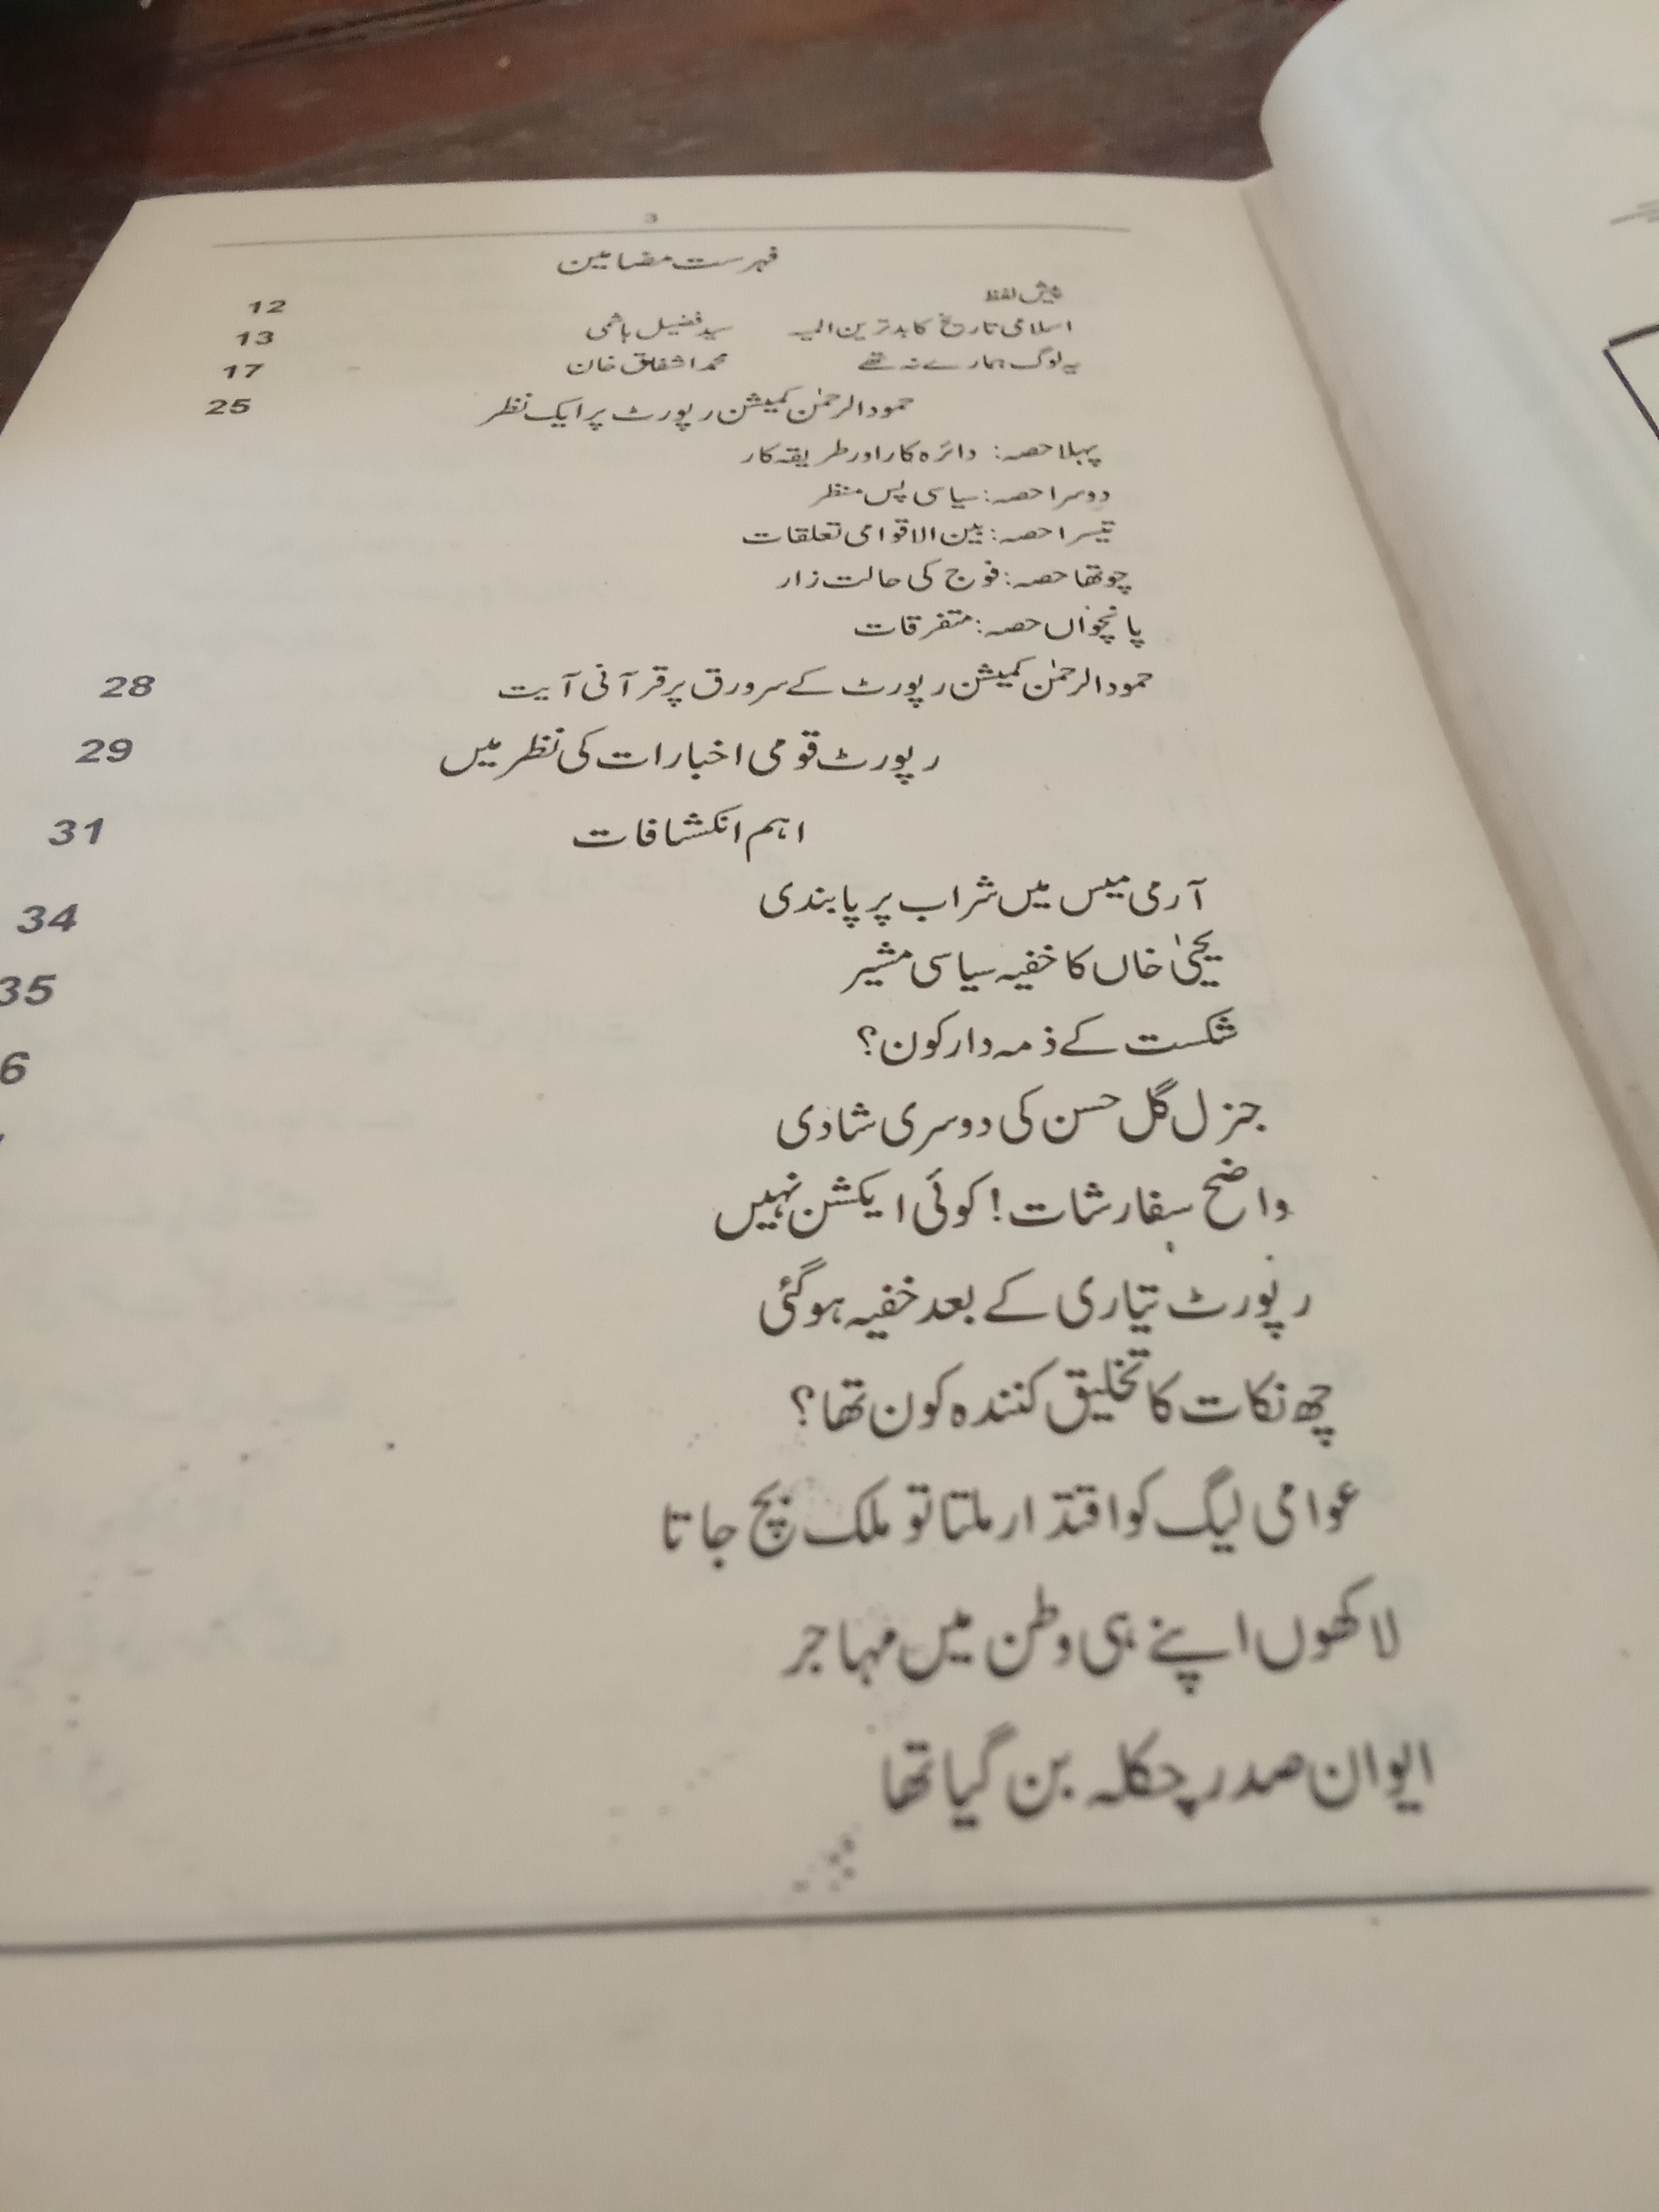 3
فہرست مضامین
پیش لفظ 12
اسلامی تاریخ کا بدترین المیہ سید فضیل ہاشمی 13
یہ لوگ ہمارے نہ تھے محمد اشفاق خان 17
حمود الرحمٰن کمیشن رپورٹ پر ایک نظر 25
پہلا حصہ: دائرہ کار اور طریقہ کار
دوسرا حصہ: سیاسی پس منظر
تیسرا حصہ: بین الاقوامی تعلقات
چوتھا حصہ: فوج کی حالت زار
پانچواں حصہ: متفرقات
حمود الرحمٰن کمیشن رپورٹ کے سرورق پر قرآنی آیت 28
رپورٹ قومی اخبارات کی نظر میں 29
اہم انکشافات 31
آرمی میس میں شراب پر پابندی 34
یحییٰ خاں کا خفیہ سیاسی مشیر 35
شکست کے ذمہ دار کون؟ 6
جنرل گل حسن کی دوسری شادی
واضح سفارشات! کوئی ایکشن نہیں
رپورٹ تیاری کے بعد خفیہ ہوگئی
چھ نکات کا تخلیق کنندہ کون تھا؟
عوامی لیگ کو اقتدار ملتا تو ملک بچ جاتا
لاکھوں اپنے ہی وطن میں مہاجر
ایوان صدر چکلہ بن گیا تھا